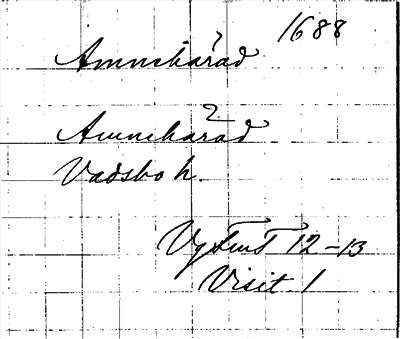 1688
Amnehärad
Amnehärad
Vadsbo h.
VgFmT 12-13
Visit. 1